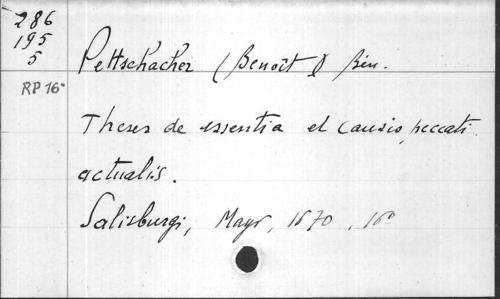 286
195
5
RP 16°
Pettschacher (Benoît) Bén.
Theses de essentia et causis peccati
actualis.
Salisburgi, Mayr, 1670, 16°